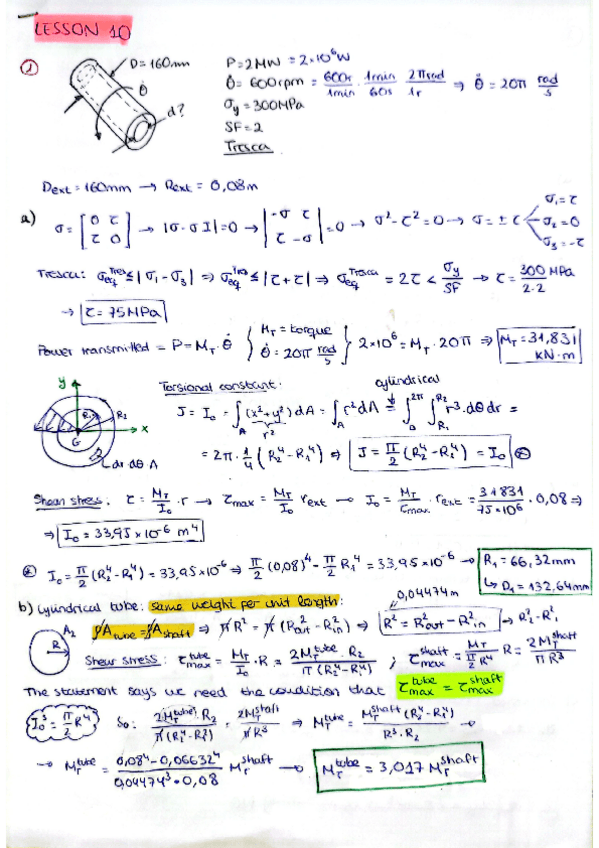 LESSON 10
1
D=160mm
θ̇
d?
P=2MW = 2×10⁶W
θ̇ = 600rpm = 600r/1min · 1min/60s · 2πrad/1r ⇒ θ̇ = 20π rad/s
σy = 300MPa
SF=2
Tresca
Dext = 160mm → Rext = 0,08m
a) σ = [0 τ; τ 0] → |σ-σI|=0 → |-σ τ; τ -σ| = 0 → σ²-τ² = 0 → σ = ±τ
σ₁ = τ
σ₂ = 0
σ₃ = -τ
Tresca: σeq^Tres ≤ |σ₁-σ₃| ⇒ σeq^Tres ≤ |τ+τ| ⇒ σeq^Tresca = 2τ < σy/SF → τ = 300 MPa/2·2
→ τ = 75MPa
Power transmitted = P = M_T · θ̇ { M_T = torque θ̇ = 20π rad/s } 2×10⁶ = M_T · 20π ⇒ M_T = 31,831 kN·m
y
R₁
R₂
x
G
dr dθ A
Torsional constant:
cylindrical
J = I₀ = ∫_A (x²+y²) dA = ∫_A r² dA = ∫₀^2π ∫_R₁^R₂ r³·dθ dr =
r²
= 2π · 1/4 (R₂⁴-R₁⁴) ⇒ J = π/2 (R₂⁴-R₁⁴) = I₀ ⊛
Shear stress: τ = M_T/I₀ · r → τmax = M_T/I₀ · rext → I₀ = M_T/τmax · rext = 31831/75×10⁶ · 0,08 ⇒
⇒ I₀ = 33,95×10⁻⁶ m⁴
⊛ I₀ = π/2 (R₂⁴-R₁⁴) = 33,95×10⁻⁶ ⇒ π/2 (0,08)⁴ - π/2 R₁⁴ = 33,95×10⁻⁶ → R₁ = 66,32mm
↳ D₁ = 132,64mm
b) Cylindrical tube: same weight per unit length:
0,04474m
A₂
R
ρA tube = ρA shaft ⇒ πR² = π(R²out - R²in) ⇒ R² = R²out - R²in → R₂²-R₁²
Shear stress: τmax^tube = M_T/I₀ · R = 2M_T^tube · R₂/π(R₂⁴-R₁⁴) ; τmax^shaft = M_T/(π/2 R⁴) R = 2M_T^shaft/πR³
The statement says we need the condition that τmax^tube = τmax^shaft
I₀ˢ = π/2 R⁴
So: 2M_T^tube · R₂/π(R₂⁴-R₁⁴) = 2M_T^shaft/πR³ ⇒ M_T^tube = M_T^shaft (R₂⁴-R₁⁴)/R³·R₂ →
→ M_T^tube = 0,08⁴-0,06632⁴/0,04474³·0,08 M_T^shaft → M_T^tube = 3,017 M_T^shaft